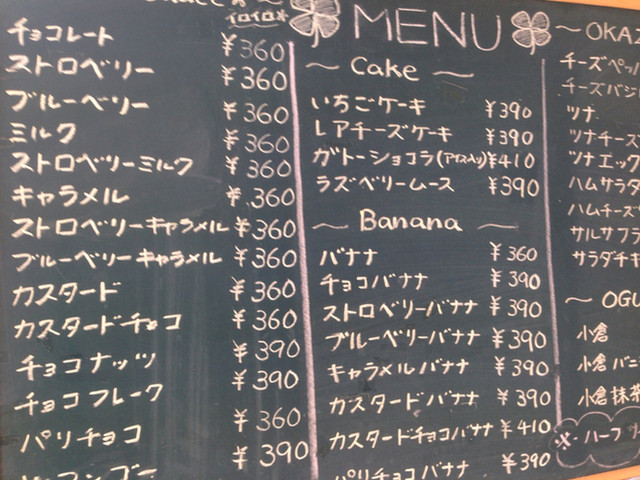 イロイロ
チョコレート ¥360
ストロベリー ¥360
ブルーベリー ¥360
ミルク ¥360
ストロベリーミルク ¥360
キャラメル ¥360
ストロベリーキャラメル ¥360
ブルーベリーキャラメル ¥360
カスタード ¥360
カスタードチョコ ¥360
チョコナッツ ¥390
チョコフレーク ¥390
パリチョコ ¥360
¥390
MENU
~ Cake ~
いちごケーキ ¥390
レアチーズケーキ ¥390
ガトーショコラ(アイス入り) ¥410
ラズベリームース ¥390
~ Banana ~
バナナ ¥360
チョコバナナ ¥390
ストロベリーバナナ ¥390
ブルーベリーバナナ ¥390
キャラメルバナナ ¥390
カスタードバナナ ¥390
カスタードチョコバナナ ¥410
パリチョコバナナ ¥390
~ OKAZ
チーズペッパ
チーズバジ
ツナ
ツナチーズ
ツナエッグ
ハムサラダ
ハムチーズ
サルサフラ
サラダチキ
~ OGU
小倉
小倉バニ
小倉抹茶
※・ハーフサ